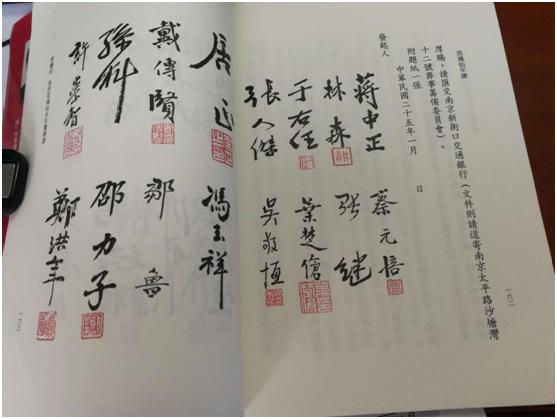 范鴻仙年譜
一六二
厚賜,請匯交南京新街口交通銀行(文件則請逕寄南京太平路沙塘灣
十二號葬事籌備委員會)。
附題紙一張
中華民國二十五年一月 日
發起人
蔣中正 蔡元培
林森 張繼
于右任 葉楚傖
張人傑 吳敬恆
居正 馮玉祥
戴傳賢 鄒魯
孫科 邵力子
許崇智 鄭洪年
一六三